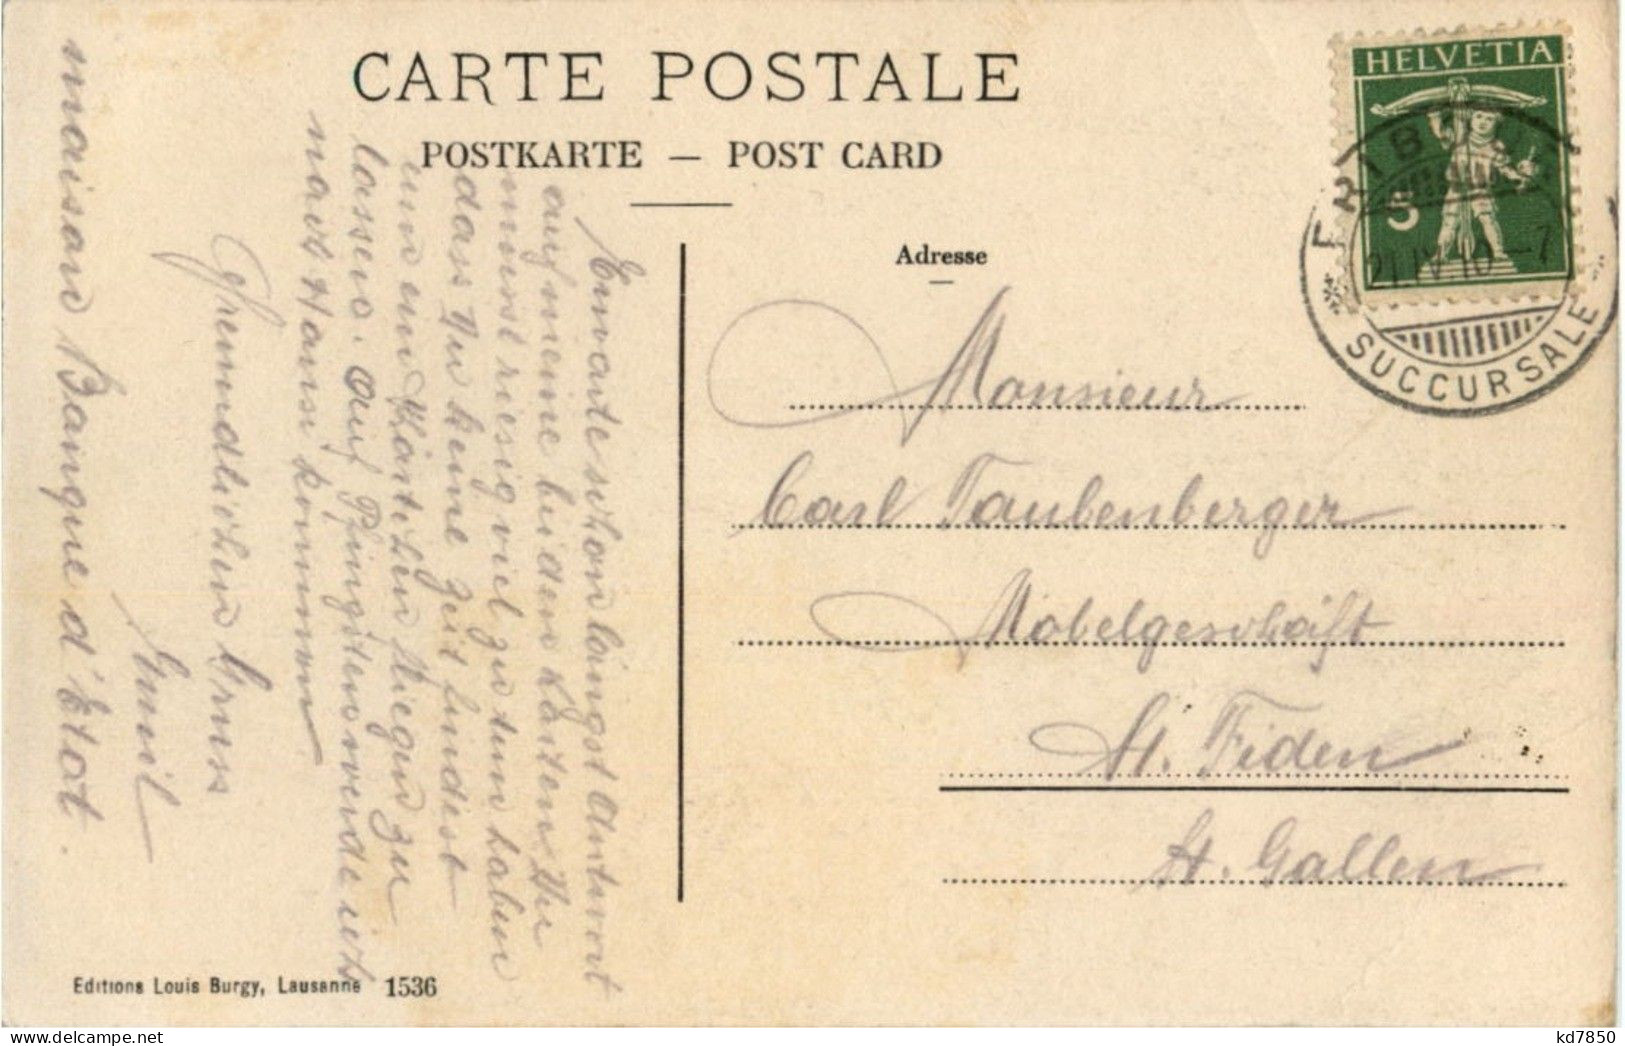 CARTE POSTALE
POSTKARTE — POST CARD
Adresse
HELVETIA
5
FRIBOURG
21.IV.10-7
SUCCURSALE
Monsieur
Carl Taubenberger
Möbelgeschäft
St. Fiden
St. Gallen
Erwarte schon längst Antwort
auf meine beiden Karten. Ihr
müsst riesig viel zu tun haben
dass Du keine Zeit findest
um ein Kärtchen fliegen zu
lassen. Auf Pfingsten werde ich
nach Hause kommen.
Freundlichen Gruss
Emil
maison Banque d'Etat.
Editions Louis Burgy, Lausanne 1536
kd7850